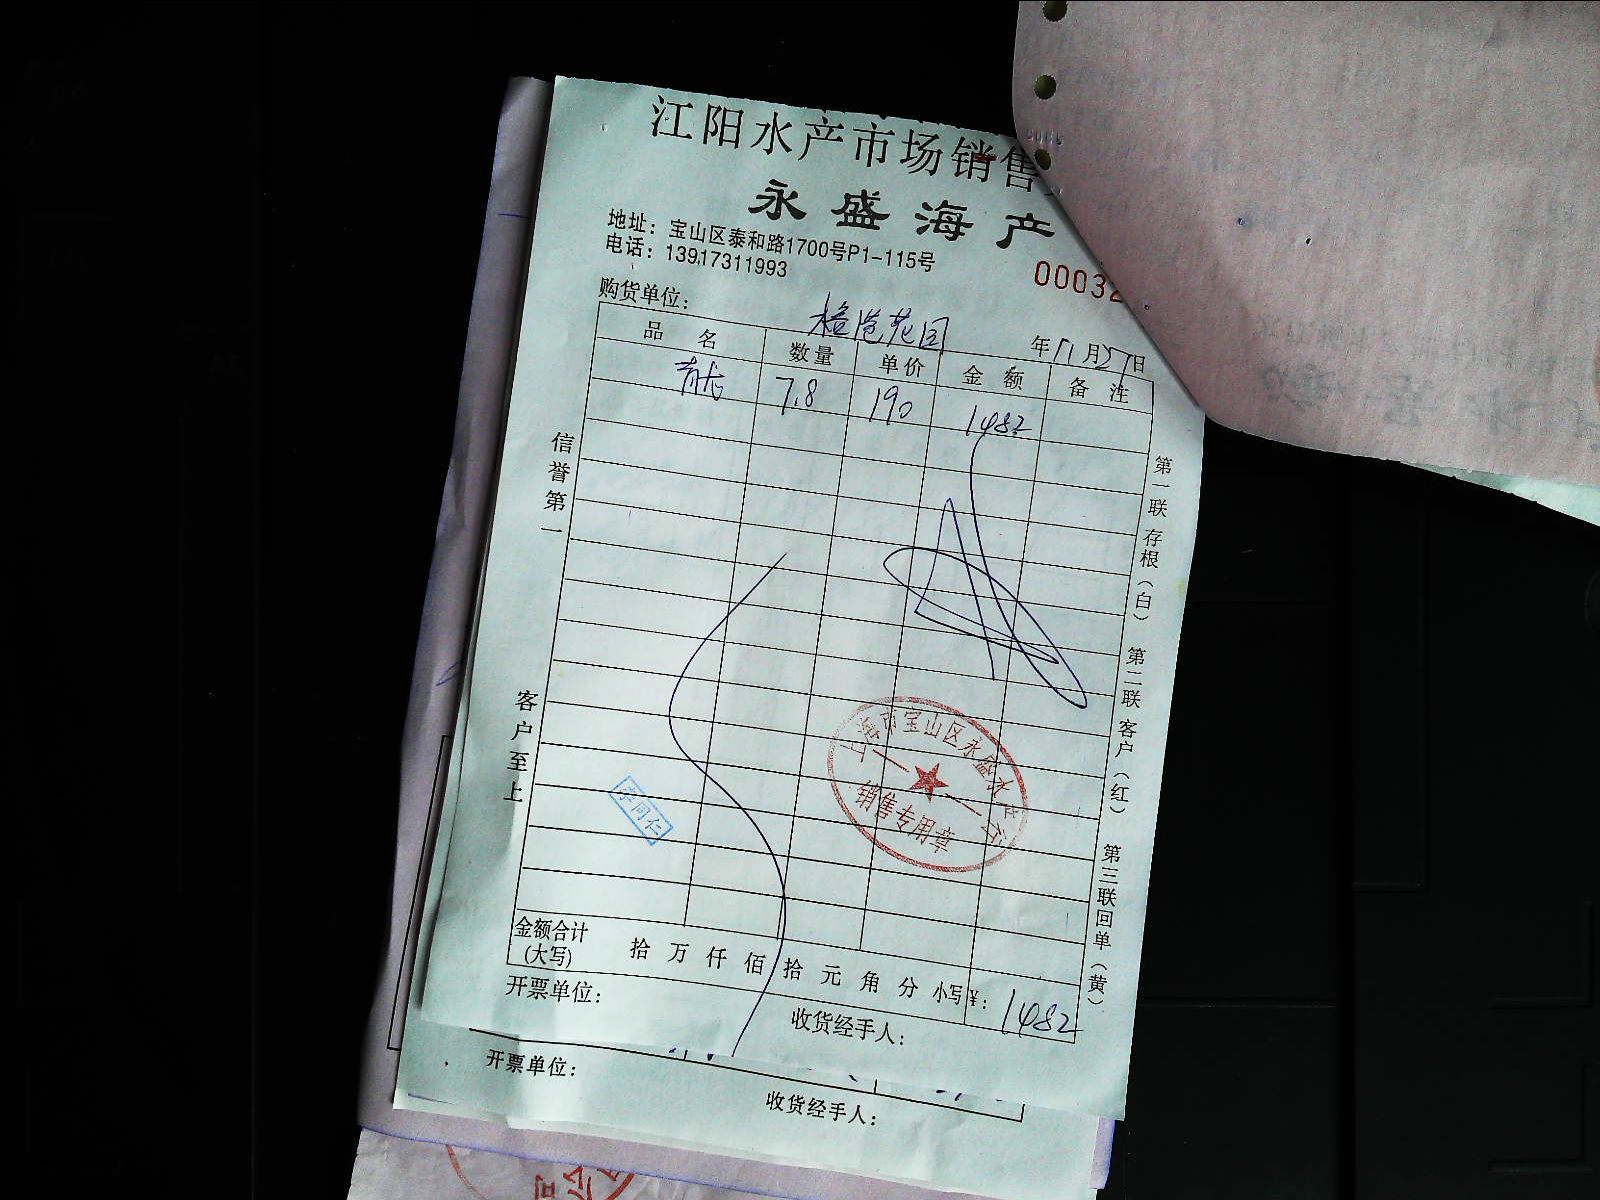 江阳水产市场销售
永盛海产
地址：宝山区泰和路1700号P1-115号
电话：13917311993
00032
购货单位：
花园
年 11月27日
品名 数量 单价 金额 备注
7.8 190 1482
信誉第一
客户至上
第一联存根（白） 第二联客户（红） 第三联回单（黄）
上海市宝山区永盛水
销售专用章
李同仁
金额合计(大写) 拾 万 仟 佰 拾 元 角 分 小写￥: 1482
开票单位：
收货经手人：
开票单位：
收货经手人：